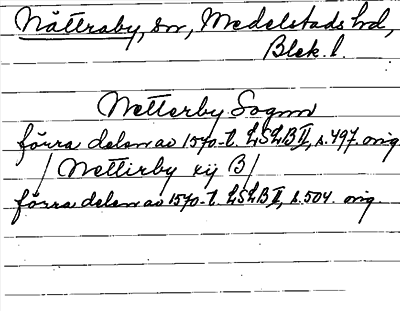 Nättraby, sn, Medelstads hd,
Blek. l.
Netterby Sognn
förra delen av 1570-t. LSLB II, s. 497. orig.
/ Nettirby xij B /
förra delen av 1570-t. LSLB II, s. 504. orig.